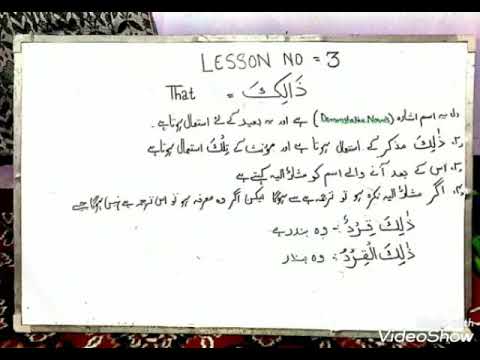 LESSON NO = 3
That = ذَالِكَ
۱۔ یہ اسم اشارہ (Demonstrative Noun) ہے اور یہ بعید کے لئے استعمال ہوتا ہے۔
۲۔ ذٰلِکَ مذکر کے استعمال ہوتا ہے اور مؤنث کے تِلْکَ استعمال ہوتا ہے
۳۔ اس کے بعد آنے والے اسم کو مشارٌ الیہ کہتے ہے
۴۔ اگر مشارٌ الیہ نکرہ ہو تو ترجمہ ہے سے ہوگا لیکن اگر وہ معرفہ ہو تو اس ترجمہ ہے نہیں ہوگا ہے
ذٰلِکَ قِرْدٌ :- وہ بندر ہے
ذٰلِکَ الْقِرْدُ :- وہ بندر
VideoShow